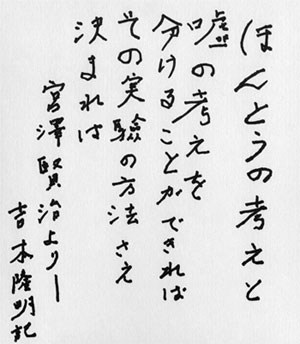 ほんとうの考えと
嘘の考えを
分けることができれば
その実験の方法さえ
決まれば
宮澤賢治より一
吉本隆明記